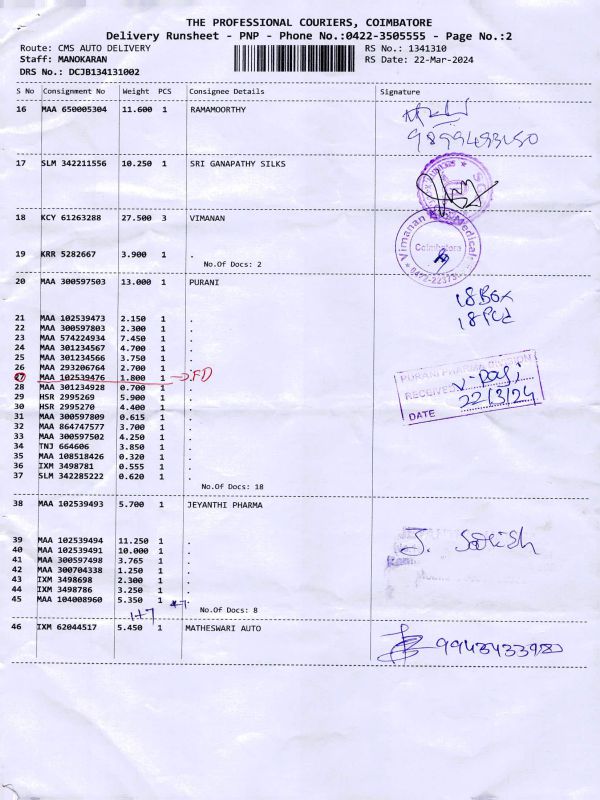 THE PROFESSIONAL COURIERS, COIMBATORE
Delivery Runsheet - PNP - Phone No.:0422-3505555 - Page No.:2
Route: CMS AUTO DELIVERY RS No.: 1341310
Staff: MANOKARAN RS Date: 22-Mar-2024
DRS No.: DCJB134131002
S No Consignment No Weight PCS Consignee Details Signature
16 MAA 650005304 11.600 1 RAMAMOORTHY
17 SLM 342211556 10.250 1 SRI GANAPATHY SILKS
18 KCY 61263288 27.500 3 VIMANAN
Vimanan Medical
Coimbatore
19 KRR 5282667 3.900 1 .
No.Of Docs: 2
20 MAA 300597503 13.000 1 PURANI
18 Box
18 Pcd
21 MAA 102539473 2.150 1 .
22 MAA 300597803 2.300 1 .
23 MAA 574224934 7.450 1 .
24 MAA 301234567 4.700 1 .
25 MAA 301234566 3.750 1 .
26 MAA 293206764 2.700 1 .
27 MAA 102539476 1.800 1 . FD
28 MAA 301234928 0.700 1 .
29 HSR 2995269 5.900 1 .
30 HSR 2995270 4.400 1 .
31 MAA 300597809 0.615 1 .
32 MAA 864747577 3.700 1 .
33 MAA 300597502 4.250 1 .
34 TNJ 664606 3.850 1 .
35 MAA 108518426 0.320 1 .
36 IXM 3498781 0.555 1 .
37 SLM 342285222 0.620 1 .
No.Of Docs: 18
PURANI PHARMA DIVISION
RECEIVED
DATE 22/3/24
38 MAA 102539493 5.700 1 JEYANTHI PHARMA
39 MAA 102539494 11.250 1 .
40 MAA 102539491 10.000 1 .
41 MAA 300597498 3.765 1 .
42 MAA 300704338 1.250 1 .
43 IXM 3498698 2.300 1 .
44 IXM 3498786 3.250 1 .
45 MAA 104008960 5.350 1 .
No.Of Docs: 8
J. Satish
1+7
46 IXM 62044517 5.450 1 MATHESWARI AUTO
9943433980